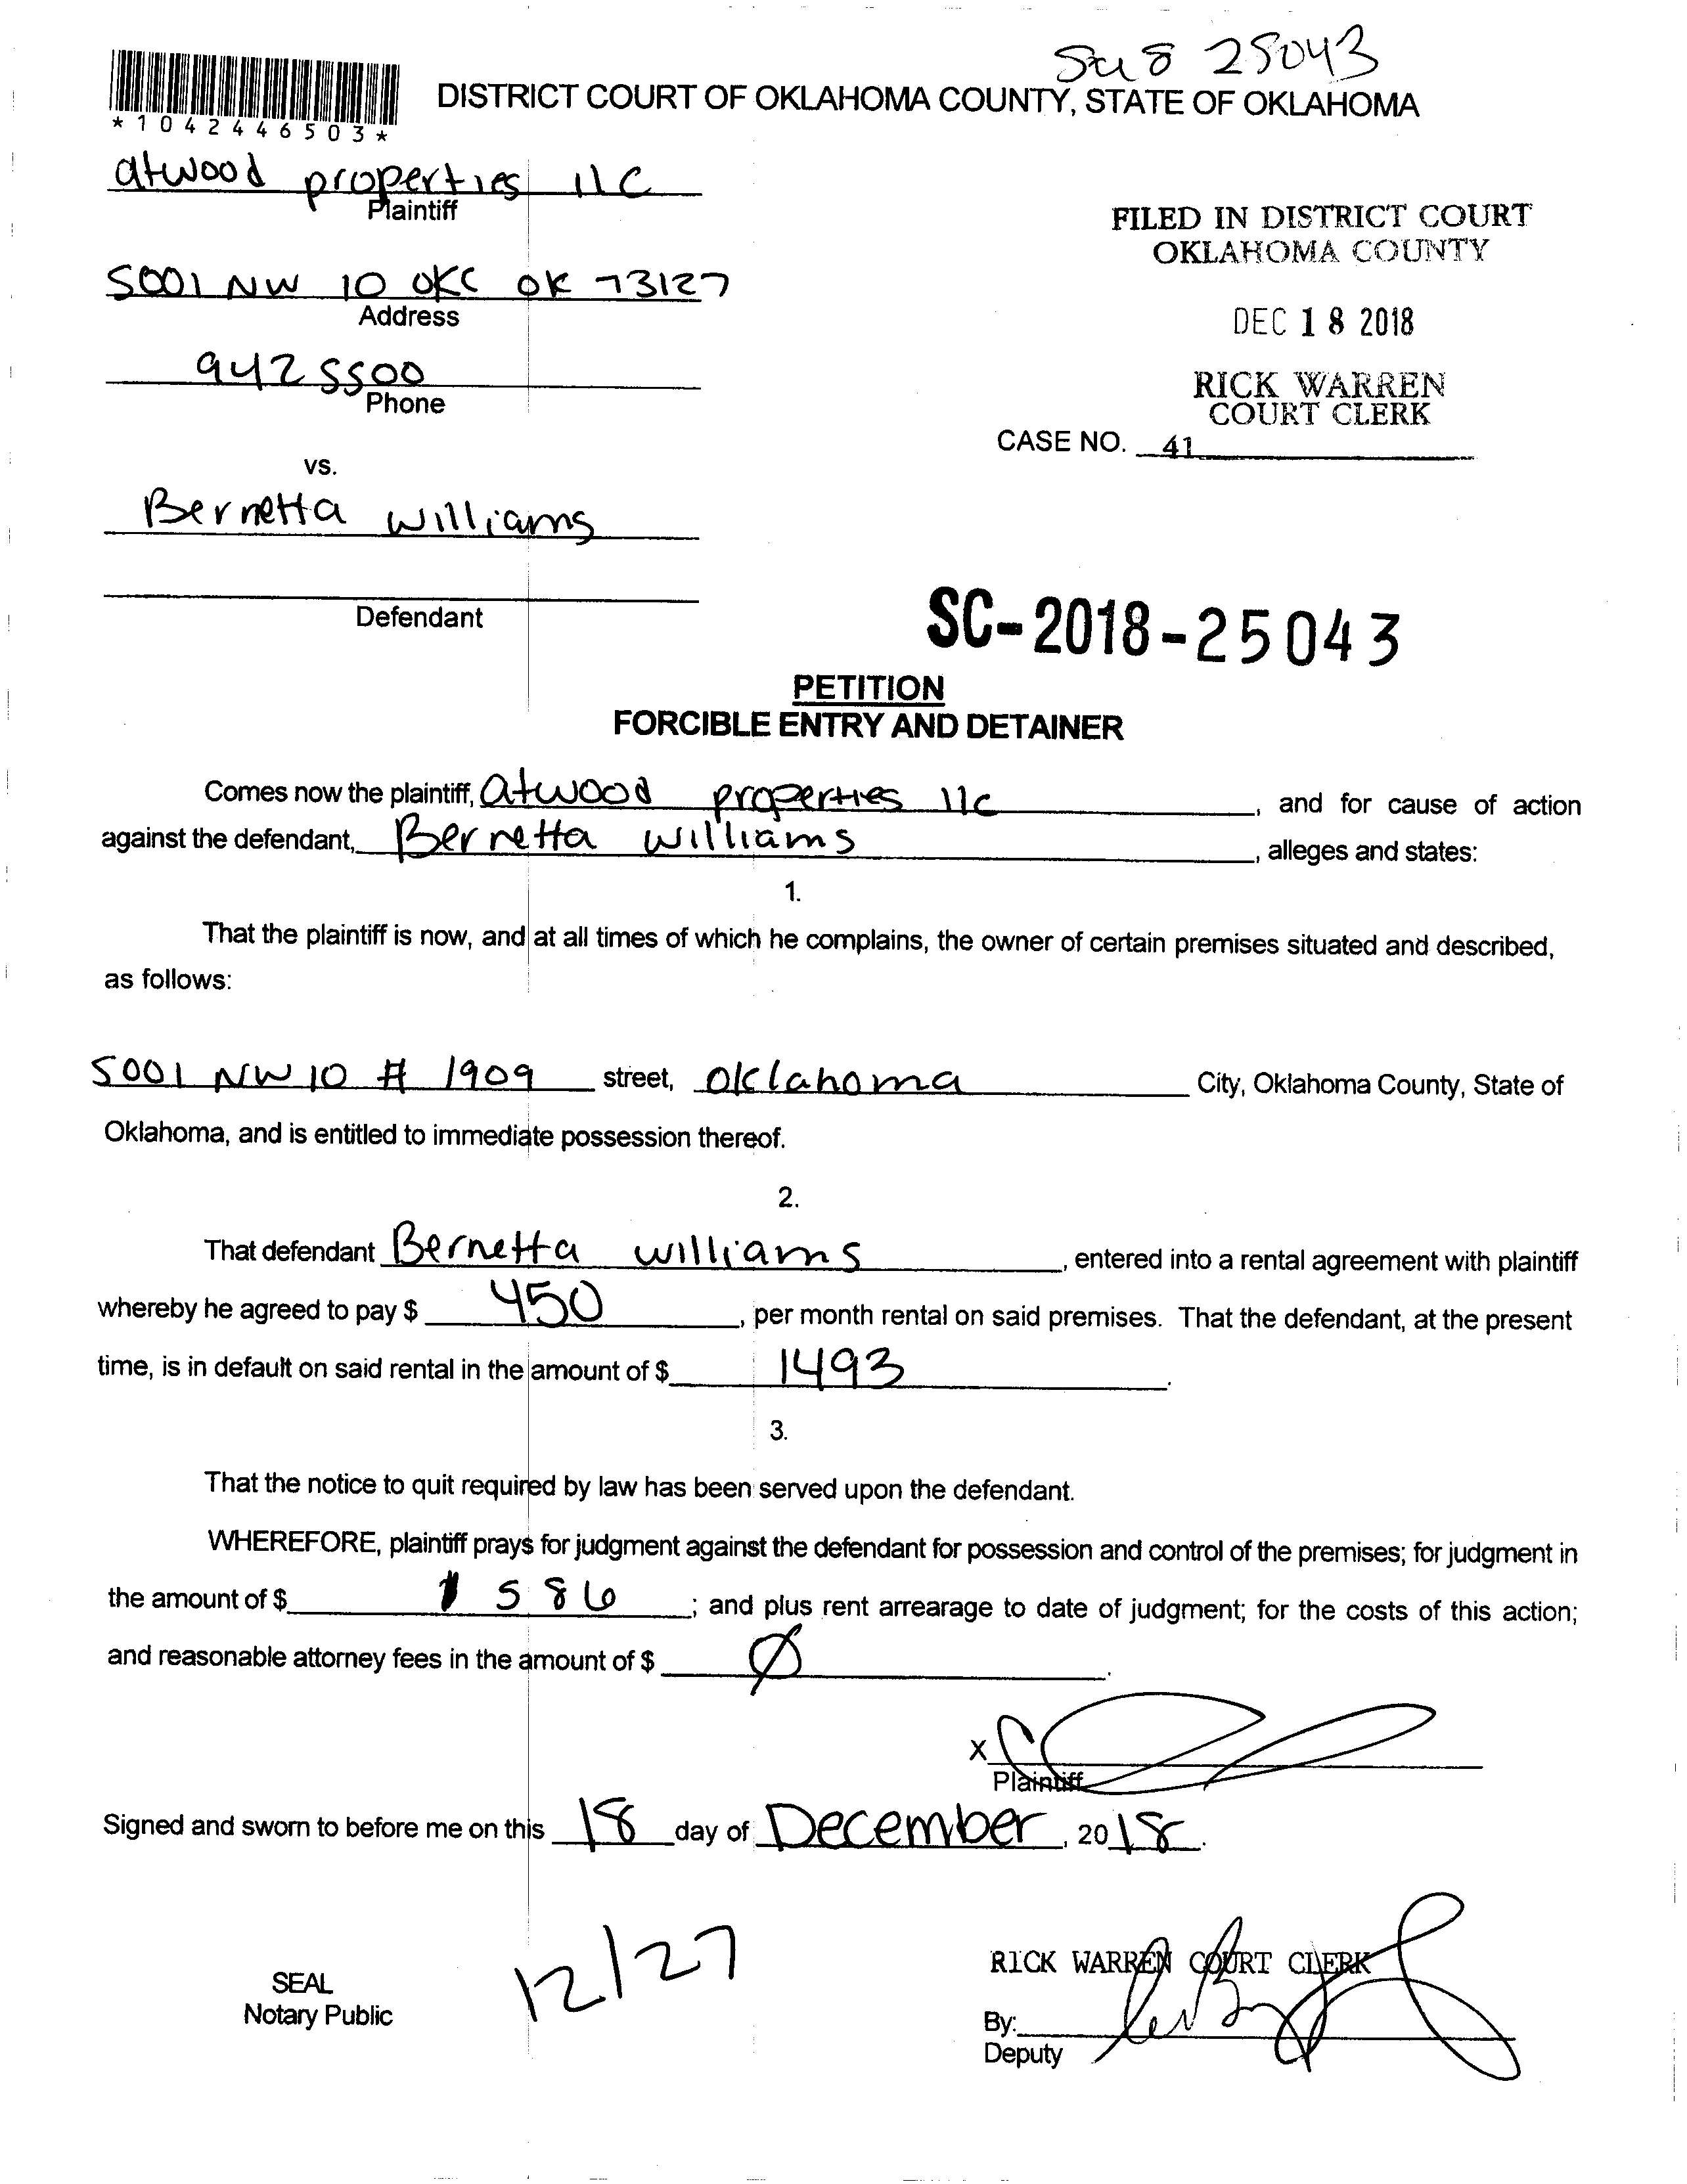 SC18 25043
*1042446503*
DISTRICT COURT OF OKLAHOMA COUNTY, STATE OF OKLAHOMA
atwood properties llc
Plaintiff
FILED IN DISTRICT COURT
OKLAHOMA COUNTY
5001 NW 10 OKC OK 73127
Address
DEC 18 2018
942 5500
Phone
RICK WARREN
COURT CLERK
CASE NO. 41
vs.
Bernetta Williams
Defendant
SC-2018-25043
PETITION
FORCIBLE ENTRY AND DETAINER
Comes now the plaintiff, atwood properties llc, and for cause of action
against the defendant, Bernetta Williams, alleges and states:
1.
That the plaintiff is now, and at all times of which he complains, the owner of certain premises situated and described,
as follows:
5001 NW 10 # 1909 street, Oklahoma City, Oklahoma County, State of
Oklahoma, and is entitled to immediate possession thereof.
2.
That defendant Bernetta Williams, entered into a rental agreement with plaintiff
whereby he agreed to pay $ 450, per month rental on said premises. That the defendant, at the present
time, is in default on said rental in the amount of $ 1493.
3.
That the notice to quit required by law has been served upon the defendant.
WHEREFORE, plaintiff prays for judgment against the defendant for possession and control of the premises; for judgment in
the amount of $ 1586; and plus rent arrearage to date of judgment; for the costs of this action;
and reasonable attorney fees in the amount of $ Ø.
X
Plaintiff
Signed and sworn to before me on this 18 day of December, 2018.
12/27
SEAL
Notary Public
RICK WARREN COURT CLERK
By:
Deputy